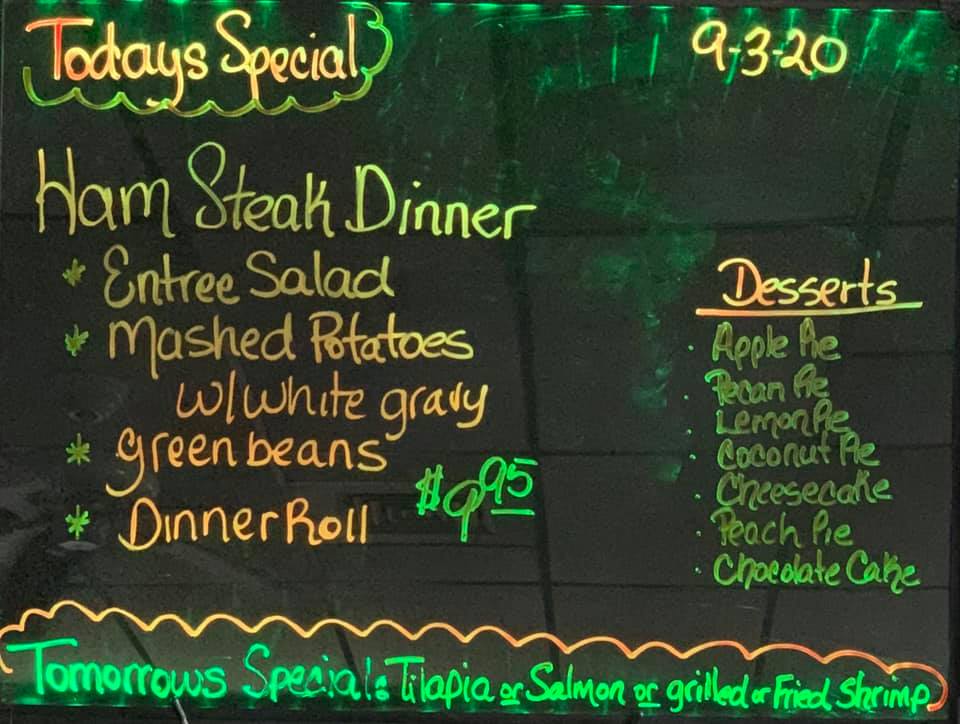 Todays Special
9-3-20
Ham Steak Dinner
* Entree Salad
* Mashed Potatoes
w/white gravy
* green beans
* Dinner Roll
$9.95
Desserts
· Apple Pie
· Pecan Pie
· Lemon Pie
· Coconut Pie
· Cheesecake
· Peach Pie
· Chocolate Cake
Tomorrows Special: Tilapia or Salmon or grilled or Fried Shrimp